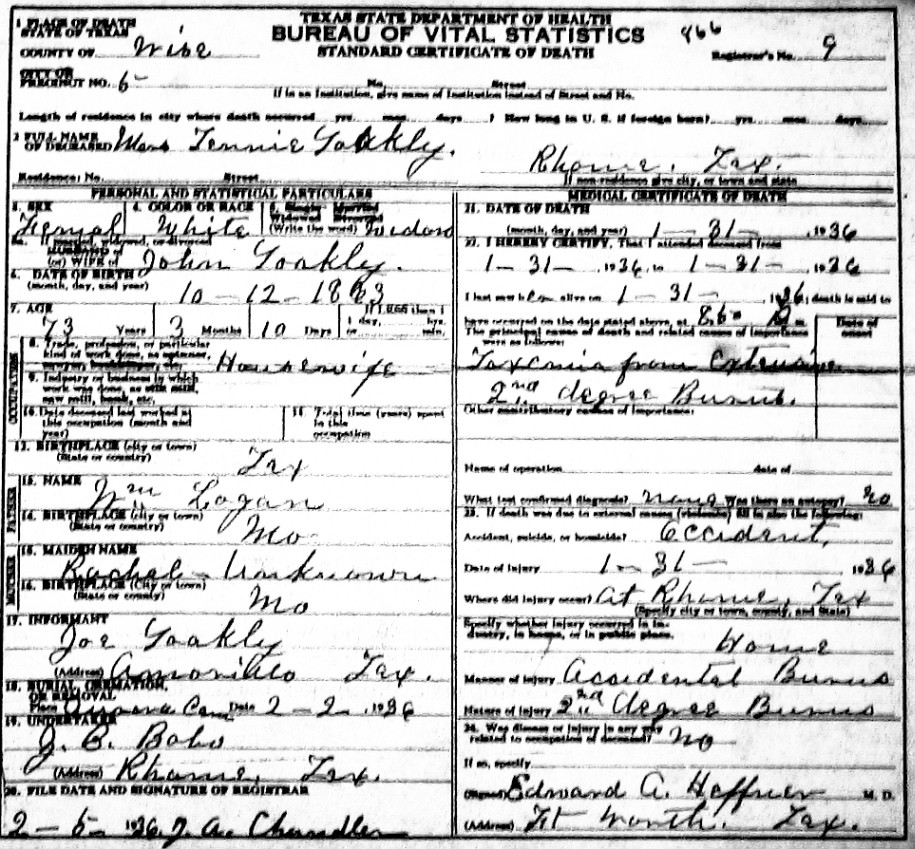 TEXAS STATE DEPARTMENT OF HEALTH
BUREAU OF VITAL STATISTICS 866
STANDARD CERTIFICATE OF DEATH
1 PLACE OF DEATH
STATE OF TEXAS
COUNTY OF Wise Registrar's No. 9
CITY OR
PRECINCT NO. 5 No. Street
If in an Institution, give name of Institution instead of Street and No.
Length of residence in city where death occurred yrs. mos. days. ? How long in U. S. if foreign born? yrs. mos. days.
2 FULL NAME
OF DECEASED Mrs Tennie Yoakly.
Rhome, Tex.
Residence: No. Street If non-residence give city, or town and state
PERSONAL AND STATISTICAL PARTICULARS
3. SEX 4. COLOR OR RACE 5. Single Married
Widowed Divorced
(Write the word) Widow
Femal White
5a. If married, widowed, or divorced
HUSBAND of
(or) WIFE of John Yoakly.
6. DATE OF BIRTH
(month, day, and year) 10-12-18
7. AGE If LESS than 1
1 day, hrs.
73 Years 3 Months 10 Days or min.
OCCUPATION
8. Trade, profession, or particular
kind of work done, as spinner,
sawyer, bookkeeper, etc. Housewife
9. Industry or business in which
work was done, as silk mill,
saw mill, bank, etc.
10. Date deceased last worked at
this occupation (month and
year)
11. Total time (years) spent
in this
occupation
12. BIRTHPLACE (city or town)
(State or country) Tex
FATHER
13. NAME
Wm Logan
14. BIRTHPLACE (city or town)
(State or country) Mo
MOTHER
15. MAIDEN NAME
Rachel - Unknown
16. BIRTHPLACE (City or town)
(State or country) Mo
17. INFORMANT
Joe Yoakly
(Address) Amorillo Tex.
18. BURIAL, CREMATION,
OR REMOVAL
Place Aurora Cem Date 2-2-1936
19. UNDERTAKER
J. B. Babo
(Address) Rhome, Tex.
20. FILE DATE AND SIGNATURE OF REGISTRAR
2-5-1936 J. A. Chandler
MEDICAL CERTIFICATE OF DEATH
21. DATE OF DEATH
(month, day, and year) 1-31- 1936
22. I HEREBY CERTIFY, That I attended deceased from
1-31- 1936, to 1-31- 1936
I last saw h alive on 1-31- 1936; death is said to
have occurred on the date stated above, at m.
The principal cause of death and related causes of importance
were as follows: Date of
onset
Toxemia from Extensive
2nd degree Burns.
Other contributory causes of importance:
Name of operation date of
What test confirmed diagnosis? none Was there an autopsy? no
23. If death was due to external causes (violence) fill in also the following:
Accident, suicide, or homicide? Accident,
Date of injury 1-31- 1936
Where did injury occur? At Rhome, Tex
(Specify city or town, county, and State)
Specify whether injury occurred in in-
dustry, in home, or in public place.
Home
Manner of Injury Accidental Burns
Nature of Injury 2nd degree Burns
24. Was disease or injury in any way
related to occupation of deceased? no
If so, specify
(Signed) Edward A. Heffner M. D.
(Address) Ft Worth. Tex.